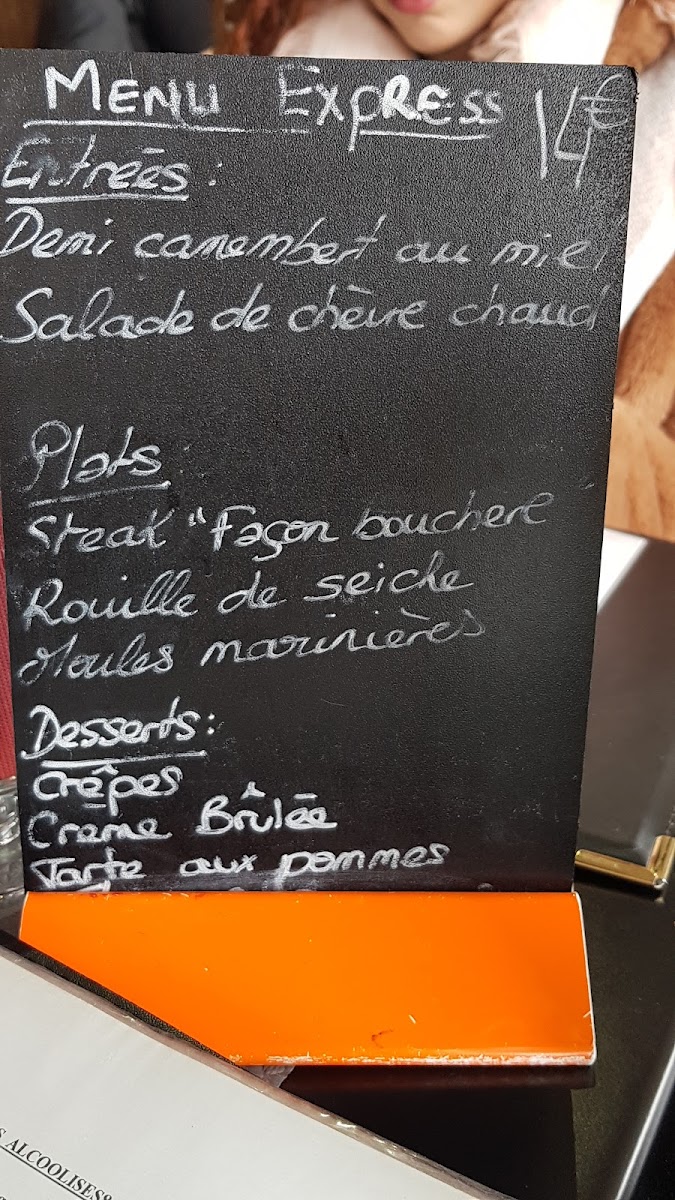 MENU EXPRESS 14€
Entrées :
Demi camembert au miel
Salade de chèvre chaud
Plats :
Steak "Façon bouchere"
Rouille de seiche
Moules marinières
Desserts :
Crêpes
Creme Brûlée
Tarte aux pommes
ALCOOLISES